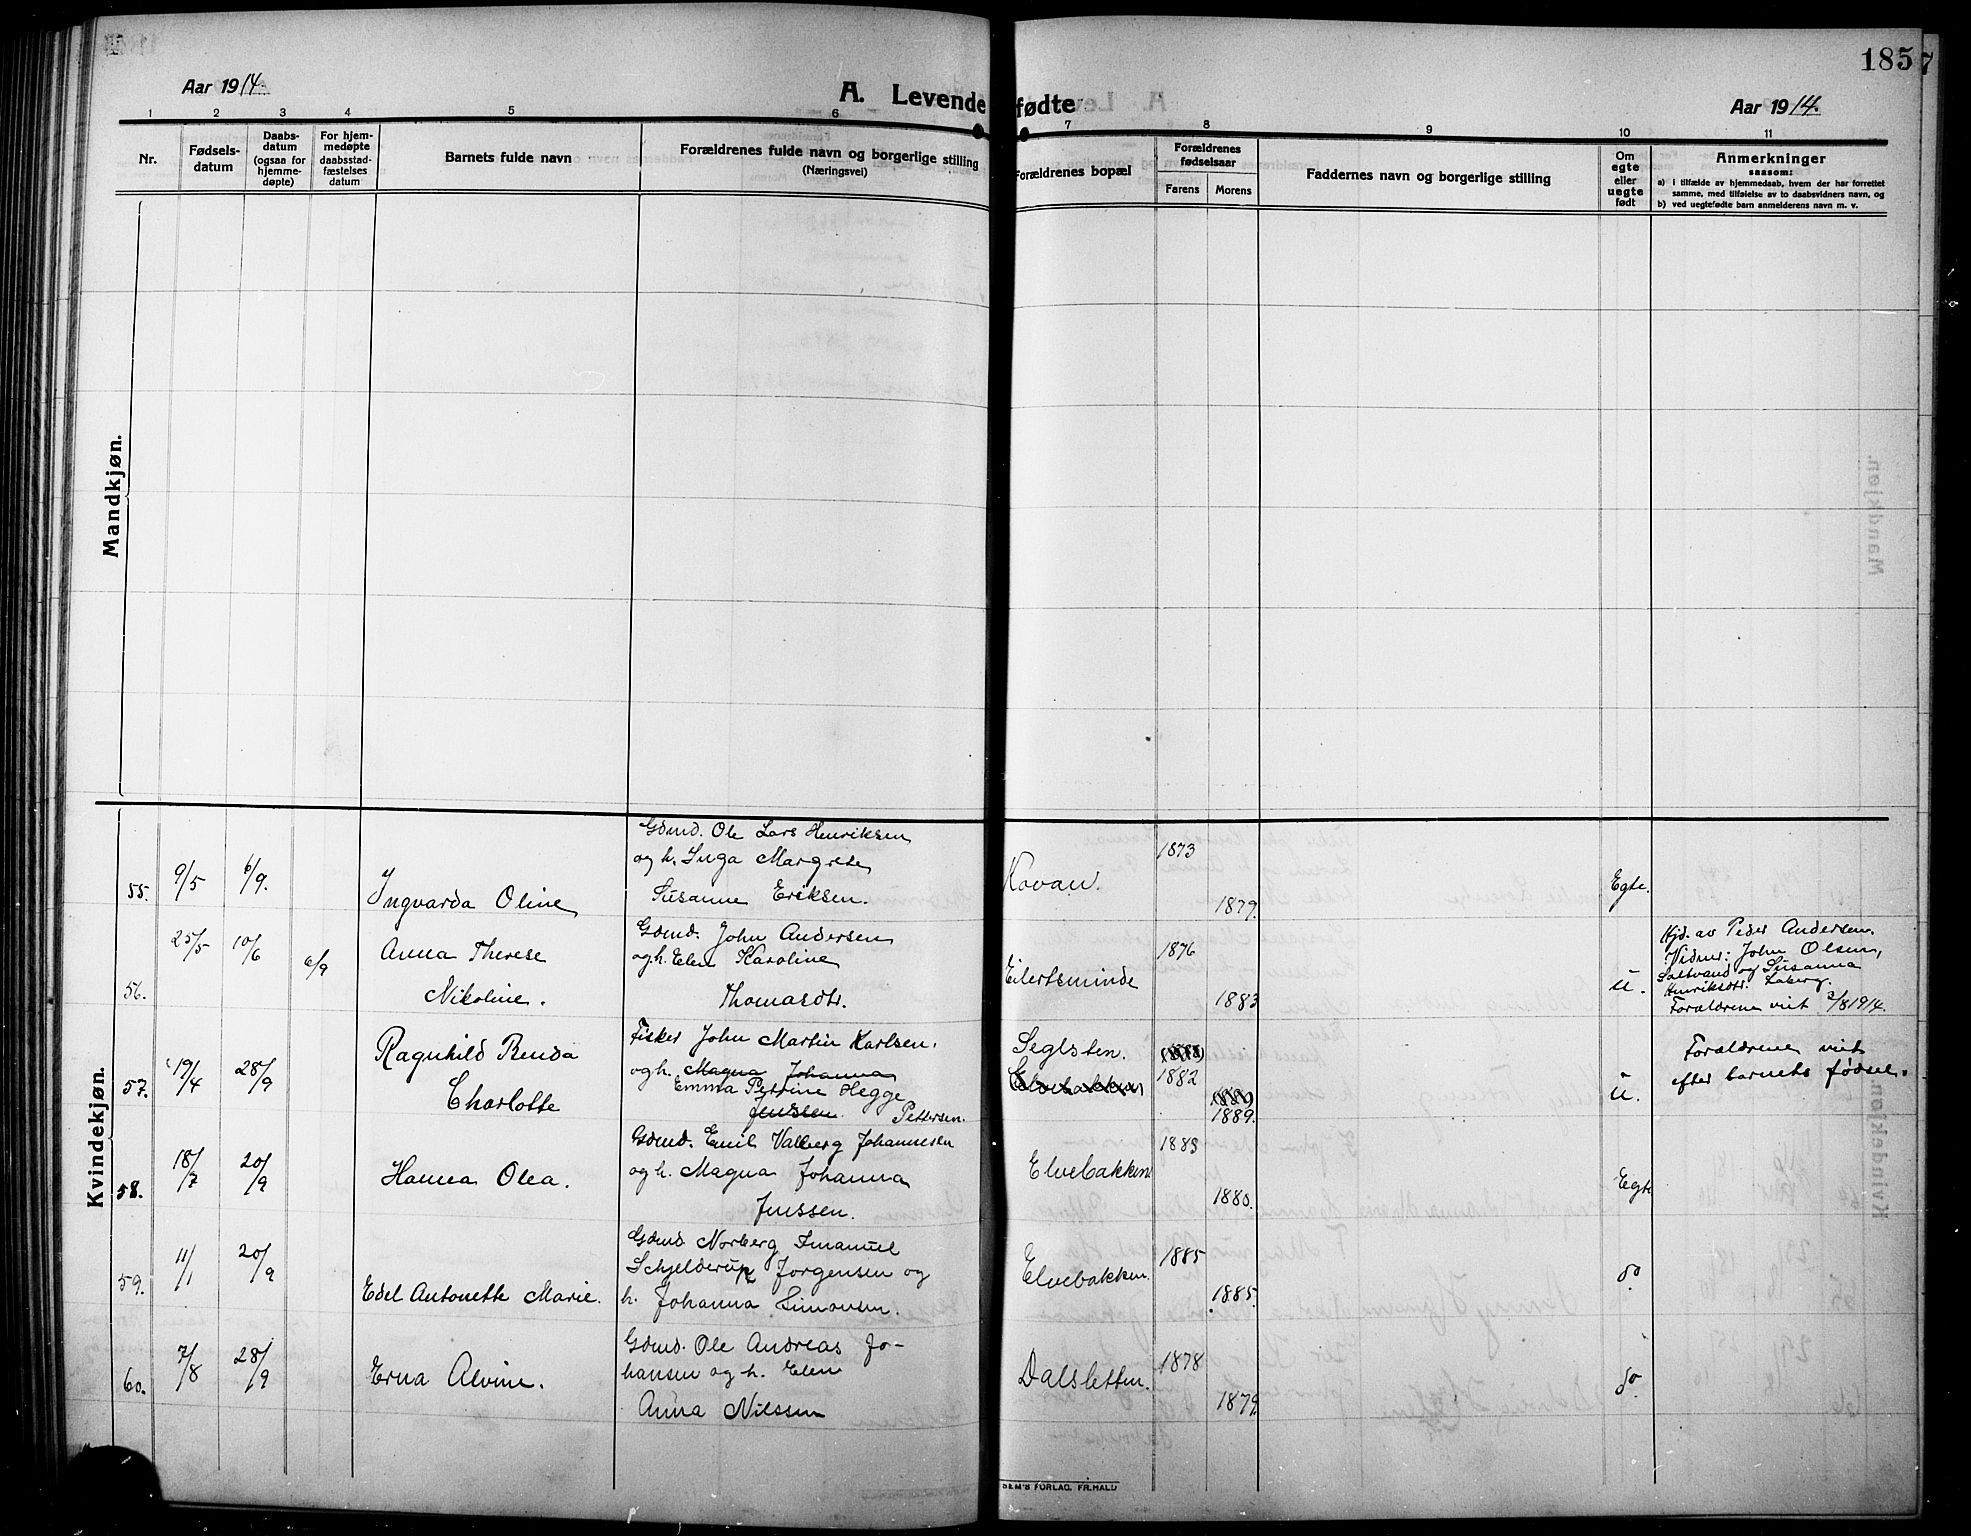 185
7
Aar 1914.
A. Levende fødte
Aar 1914.
1 2 3 4 5 6 7 8 9 10 11
Nr.
Fødsels-
datum
Daabs-
datum
(ogsaa for
hjemme-
døpte)
For hjem-
medøpte
daabsstad-
fæstelses
datum
Barnets fulde navn
Forældrenes fulde navn og borgerlige stilling
(Næringsvei)
Forældrenes bopæl
Forældrenes
fødselsaar
Farens Morens
Faddernes navn og borgerlige stilling
Om
egte
eller
uegte
født
Anmerkninger
saasom:
a) i tilfælde av hjemmedaab, hvem der har forrettet
samme, med tilføielse av to daabsvidners navn, og
b) ved uegtefødte barn anmelderens navn m. v.
Mandkjøn.
Kvindekjøn.
55. 9/5 6/9. Ingvarda Oline
Gdmd. Ole Lars Henriksen
og h. Inga Margrete
Susanne Eriksen.
Kovan. 1873 1879. Egte.
56. 25/5 10/6 6/9 Anna Therese
Nikoline.
Gdmd. John Andersen
og h. Elen Karoline
Thomasdtr.
Eilertsminde 1876 1883 u.
Hjd. av Peder Andersen.
Vidner: John Olsen,
Saltvand og Susanna
Henriksdtr. Laberg.
Forældrene viet 2/8 1914.
57. 19/4 28/9 Ragnhild Benda
Charlotte
Fisker John Martin Karlsen.
og h. Magna Johanna
Emma Petrine Hegge
Jenssen. Pettersen.
Seglsten.
Elvebakken
1882
1889.
u.
Forældrene viet
efter barnets fødsel.
58. 18/7 20/9 Hanna Olea.
Gdmd. Emil Valberg Johannesen
og h. Magna Johanna
Jenssen.
Elvebakken 1883 1880. Egte
59. 11/1 20/9 Edel Antonette Marie.
Gdmd Norberg Imanuel
Schjelderup Jørgensen og
h. Johanna Simonsen.
Elvebakken. 1885 1885. do
60. 7/8 28/9 Erna Alvine.
Gdmd. Ole Andreas Jo-
hansen og h. Elen
Anna Nilssen
Dalsletten. 1878 1879. do
SEM'S FORLAG. FR.HALD